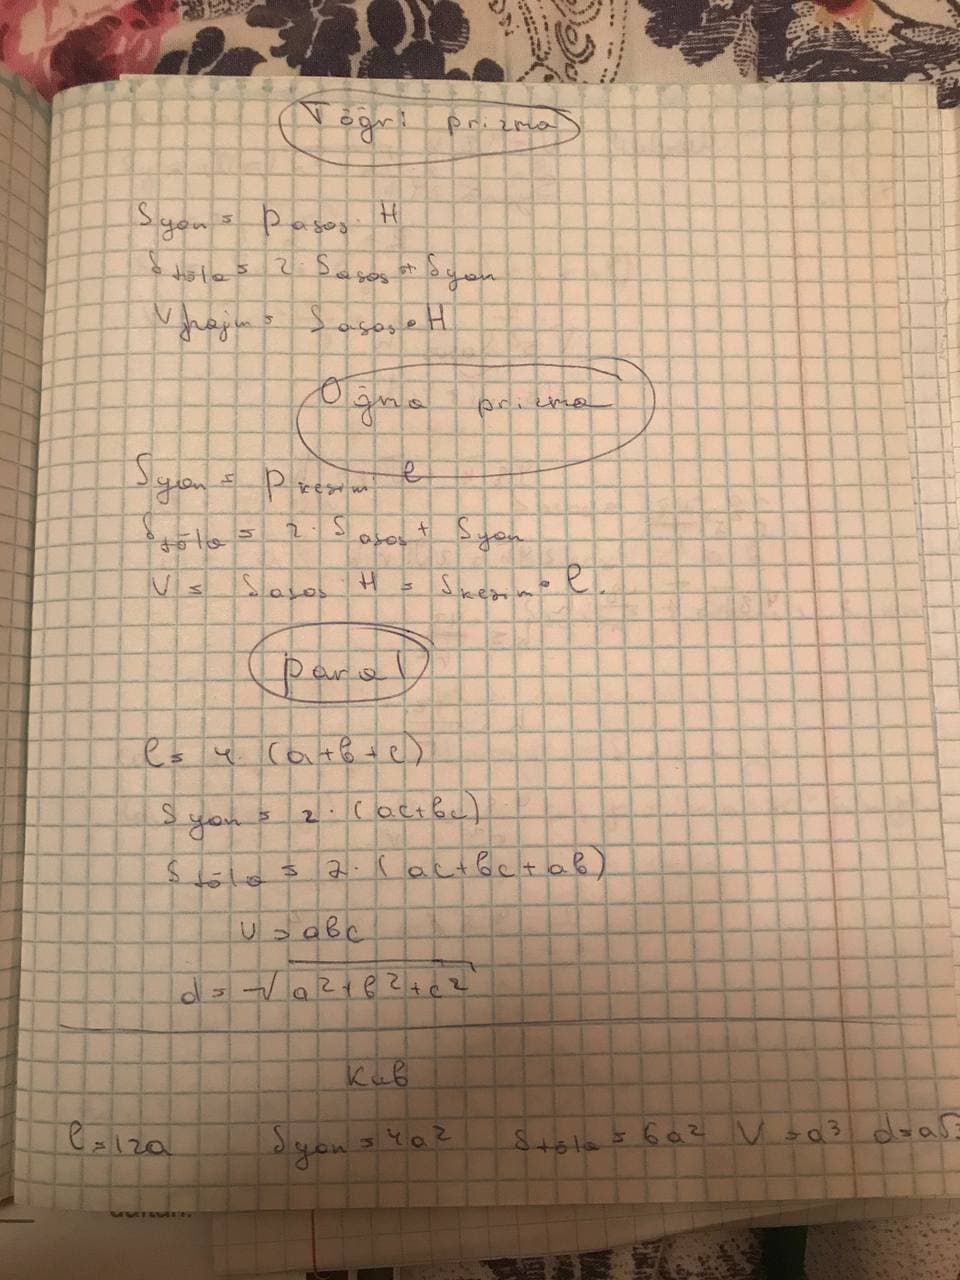 Tōğri prizma
Syon = Pasos · H
Stōla = 2 · Sasos + Syon
Vhajm = Sasos · H
Oğma prizma
Syon = Pkesim · l
Stōla = 2 · Sasos + Syon
V = Sasos · H = Skesim · l.
paral
l = 4 · (a+b+c)
Syon = 2 · (ac+bc)
Stōla = 2 · (ac+bc+ab)
V = abc
d = √a²+b²+c²
Kub
l=12a Syon = 4a² Stōla = 6a² V = a³ d=a√3